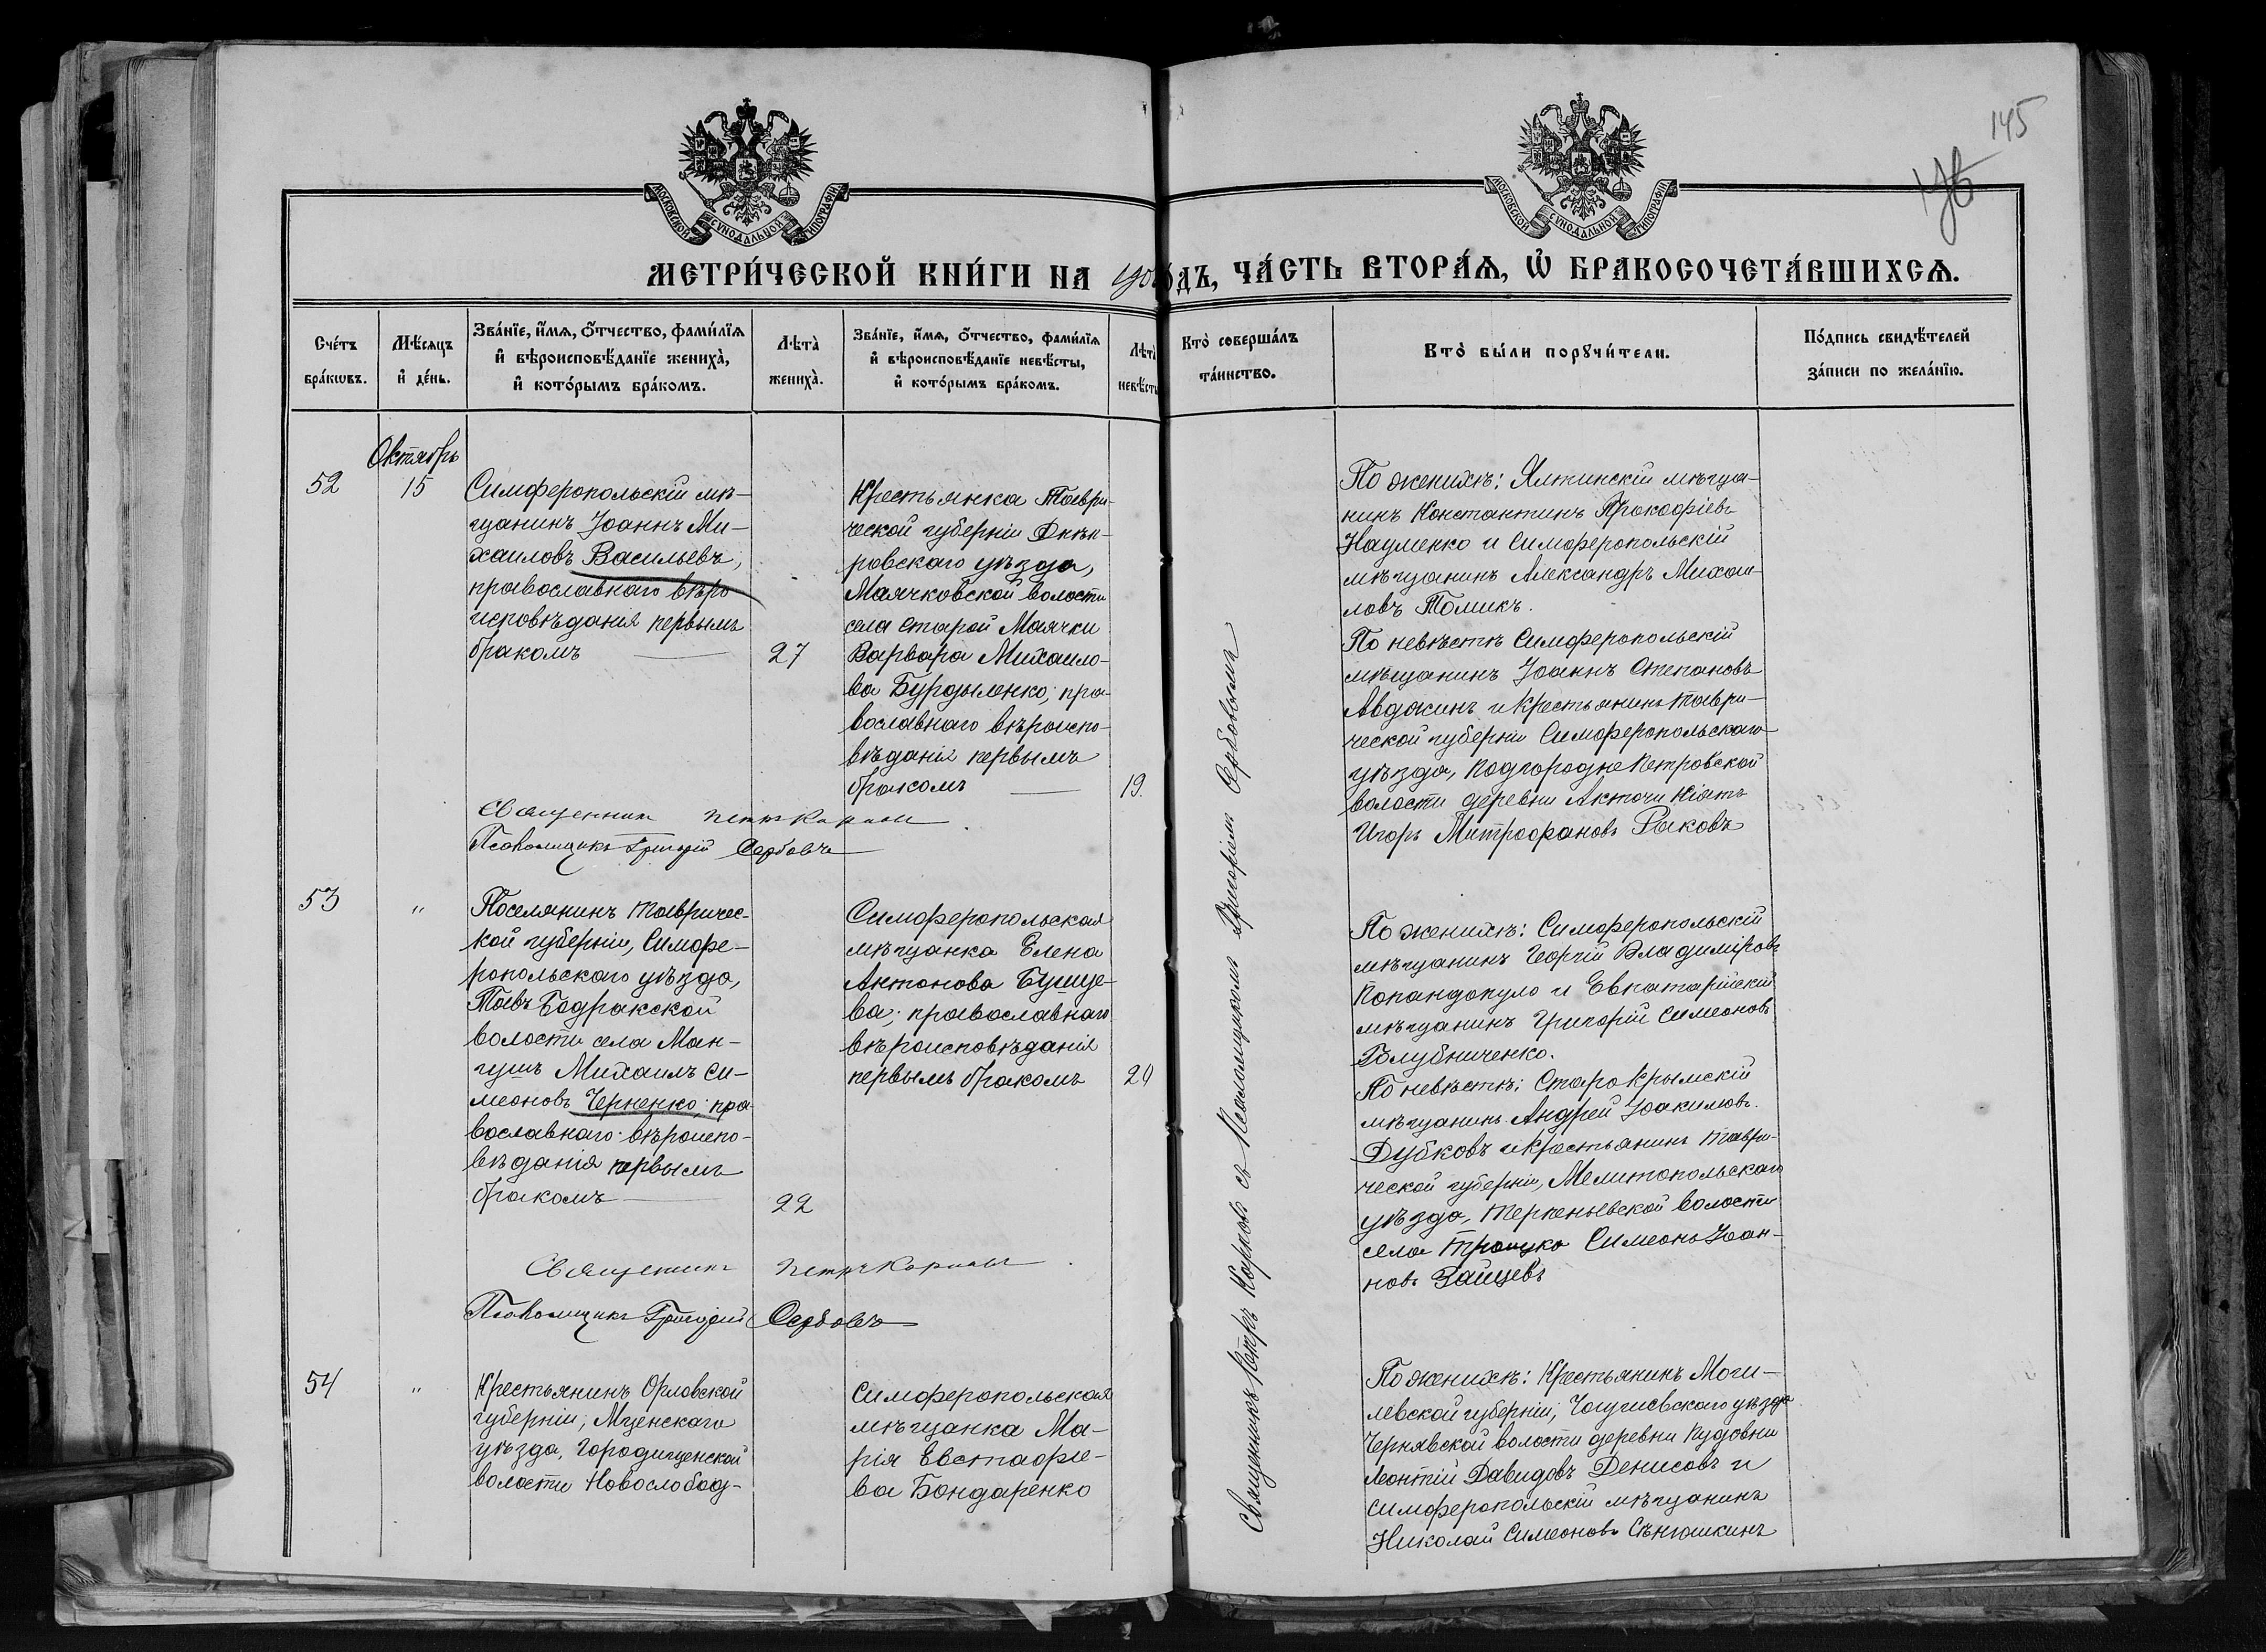 145
МОСКОВСКОЙ СѴНОДАЛЬНОЙ ТИПОГРАФІИ
МОСКОВСКОЙ СѴНОДАЛЬНОЙ ТИПОГРАФІИ
МЕТРИ́ЧЕСКОЙ КНИ́ГИ НА
ДЪ, ЧА́СТЬ ВТОРА́Ѧ, Ѽ БРАКОСОЧЕТА́ВШИХСѦ.
Сче́тъ бра́кѡвъ.
Мѣ́сяцъ и҆ де́нь.
Зва́нїе, и҆́мѧ, ѻ҆́тчество, фами́лїѧ и҆ вѣроисповѣ́данїе жениха̀, и҆ кото́рымъ бра́комъ.
Лѣта̀ жениха̀.
Зва́нїе, и҆́мѧ, ѻ҆́тчество, фами́лїѧ и҆ вѣроисповѣ́данїе невѣ́сты, и҆ кото́рымъ бра́комъ.
Лѣта̀ невѣ́сты
Кто̀ соверша́лъ та́инство.
Кто̀ бы́ли порꙋчи́тели.
По́дпись свидѣ́телей за́писи по жела́нїю.
Октябрь
52
15
Симферопольскій мѣ-
щанинъ Іоаннъ Ми-
хаиловъ Васильевъ,
православнаго вѣро
исповѣданія первымъ
бракомъ
27
Крестьянка Таври-
ческой губерніи Днѣп-
ровскаго уѣзда,
Маячковской волости
села Старой Маячки
Варвара Михаило-
ва Бурдыленко, пра-
вославнаго вѣроиспо-
вѣданія первымъ
бракомъ
19.
По женихѣ: Ялтинскій мѣща-
нинъ Константинъ Прокофіевъ
Науменко и Симферопольскій
мѣщанинъ Александръ Михаи-
ловъ Томикъ.
По невѣстѣ Симферопольскій
мѣщанинъ Іоаннъ Степановъ
Авдакинъ и крестьянинъ Таври-
ческой губерніи Симферопольскаго
уѣзда, Подгородне Петровской
волости деревни Актачи Кіятъ
Игорь Митрофановъ Рыковъ
Священникъ Петръ
Псаломщикъ Григорій Сербовъ
53
"
Поселянинъ Тавричес-
кой губерніи, Симфе-
ропольскаго уѣзда,
Тавъ Бодракской
волости села Ман-
гушъ Михаилъ Си-
меоновъ Черненко, пра-
вославнаго вѣроиспо-
вѣданія первымъ
бракомъ
22
Симферопольская
мѣщанка Елена
Антонова Бушуе-
ва; православнаго
вѣроисповѣданія
первымъ бракомъ
По женихѣ: Симферопольскій
мѣщанинъ Георгій Владиміровъ
Попандопуло и Евпаторійскій
мѣщанинъ Григорій Симеоновъ
Голубниченко.
По невѣстѣ: Старо Крымскій
мѣщанинъ Андрей Іоакимовъ
Дубковъ и крестьянинъ Таври-
ческой губерніи, Мелитопольскаго
уѣзда, Терпеньевской волости
села Троицко Симеонъ Іоан-
новъ Зайцевъ
Священникъ Петръ
Псаломщикъ Григорій Сербовъ
54
"
Крестьянинъ Орловской
губерніи, Мценскаго
уѣзда, Городищенской
волости Новослобод-
Симферопольская
мѣщанка Ма-
рія Евстафіе-
ва Бондаренко
По женихѣ: Крестьянинъ Моги-
левской губерніи, уѣзда
Чернявской волости деревни
Леонтій Давидовъ Денисовъ и
Симферопольскій мѣщанинъ
Николай Симеоновъ Сѣнюшкинъ
Священникъ Петръ съ Псаломщикомъ Григоріемъ Сербовымъ